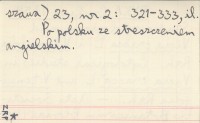 szawa) 23, nr 2: 321-333, il.
Po polsku ze streszczeniem
angielskim.